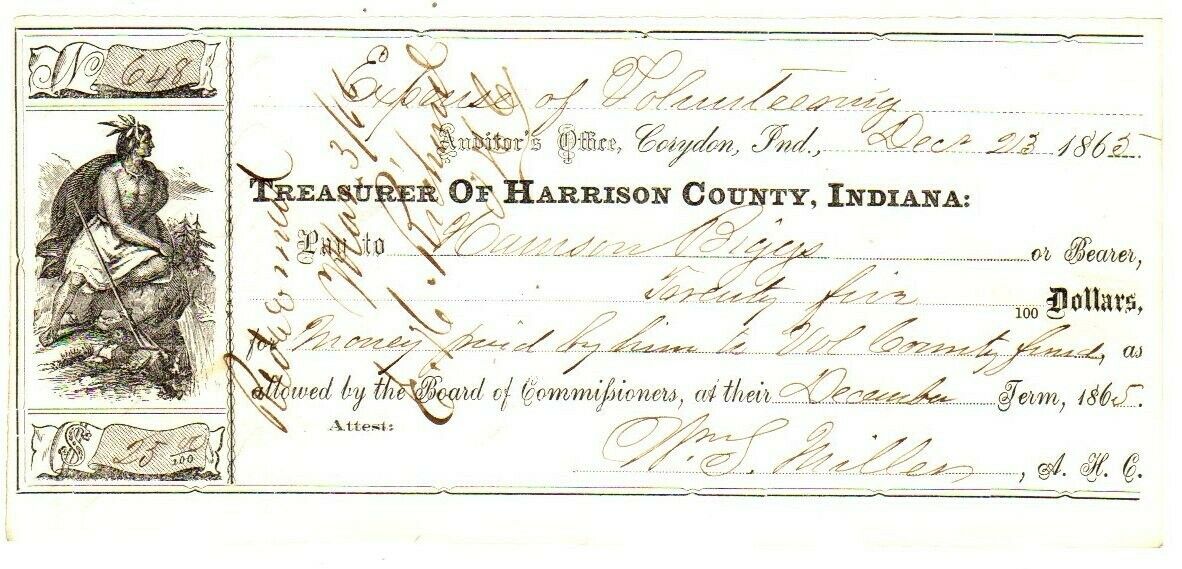 No 648
Expense of Volunteering
Auditor's Office, Corydon, Ind., Decr 23 1865.
TREASURER OF HARRISON COUNTY, INDIANA:
Pay to Harrison Biggs or Bearer,
Twenty five 100 Dollars,
for Money paid by him to Vol County fund, as
allowed by the Board of Commissioners, at their December Term, 1865.
Attest:
Wm S. Miller, A. H. C.
$ 25 /100
Redeemed
Mar 3/66